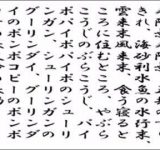 きれ、海砂利水魚の水行末、
雲来末風来末、食う寝ると
ころに住むところ、やぶら
こうじのぶらこうじ、パイ
ポパイポパイポのシューリ
ンガン、シューリンガンの
グーリンダイ、グーリンダ
イのポンポコピーのポンポ